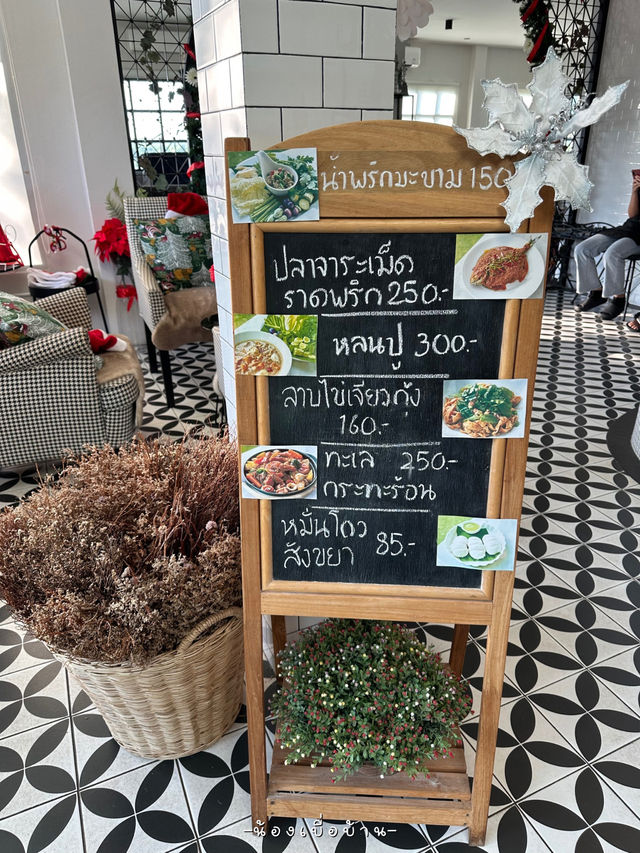 น้ำพริกมะขาม 150
ปลาจาระเม็ด
ราดพริก 250.-
หลนปู 300.-
ลาบไข่เจียวกุ้ง
160.-
ทะเล 250.-
กระทะร้อน
หมั่นโถว
สังขยา 85.-
-น้องเบื่อบ้าน-